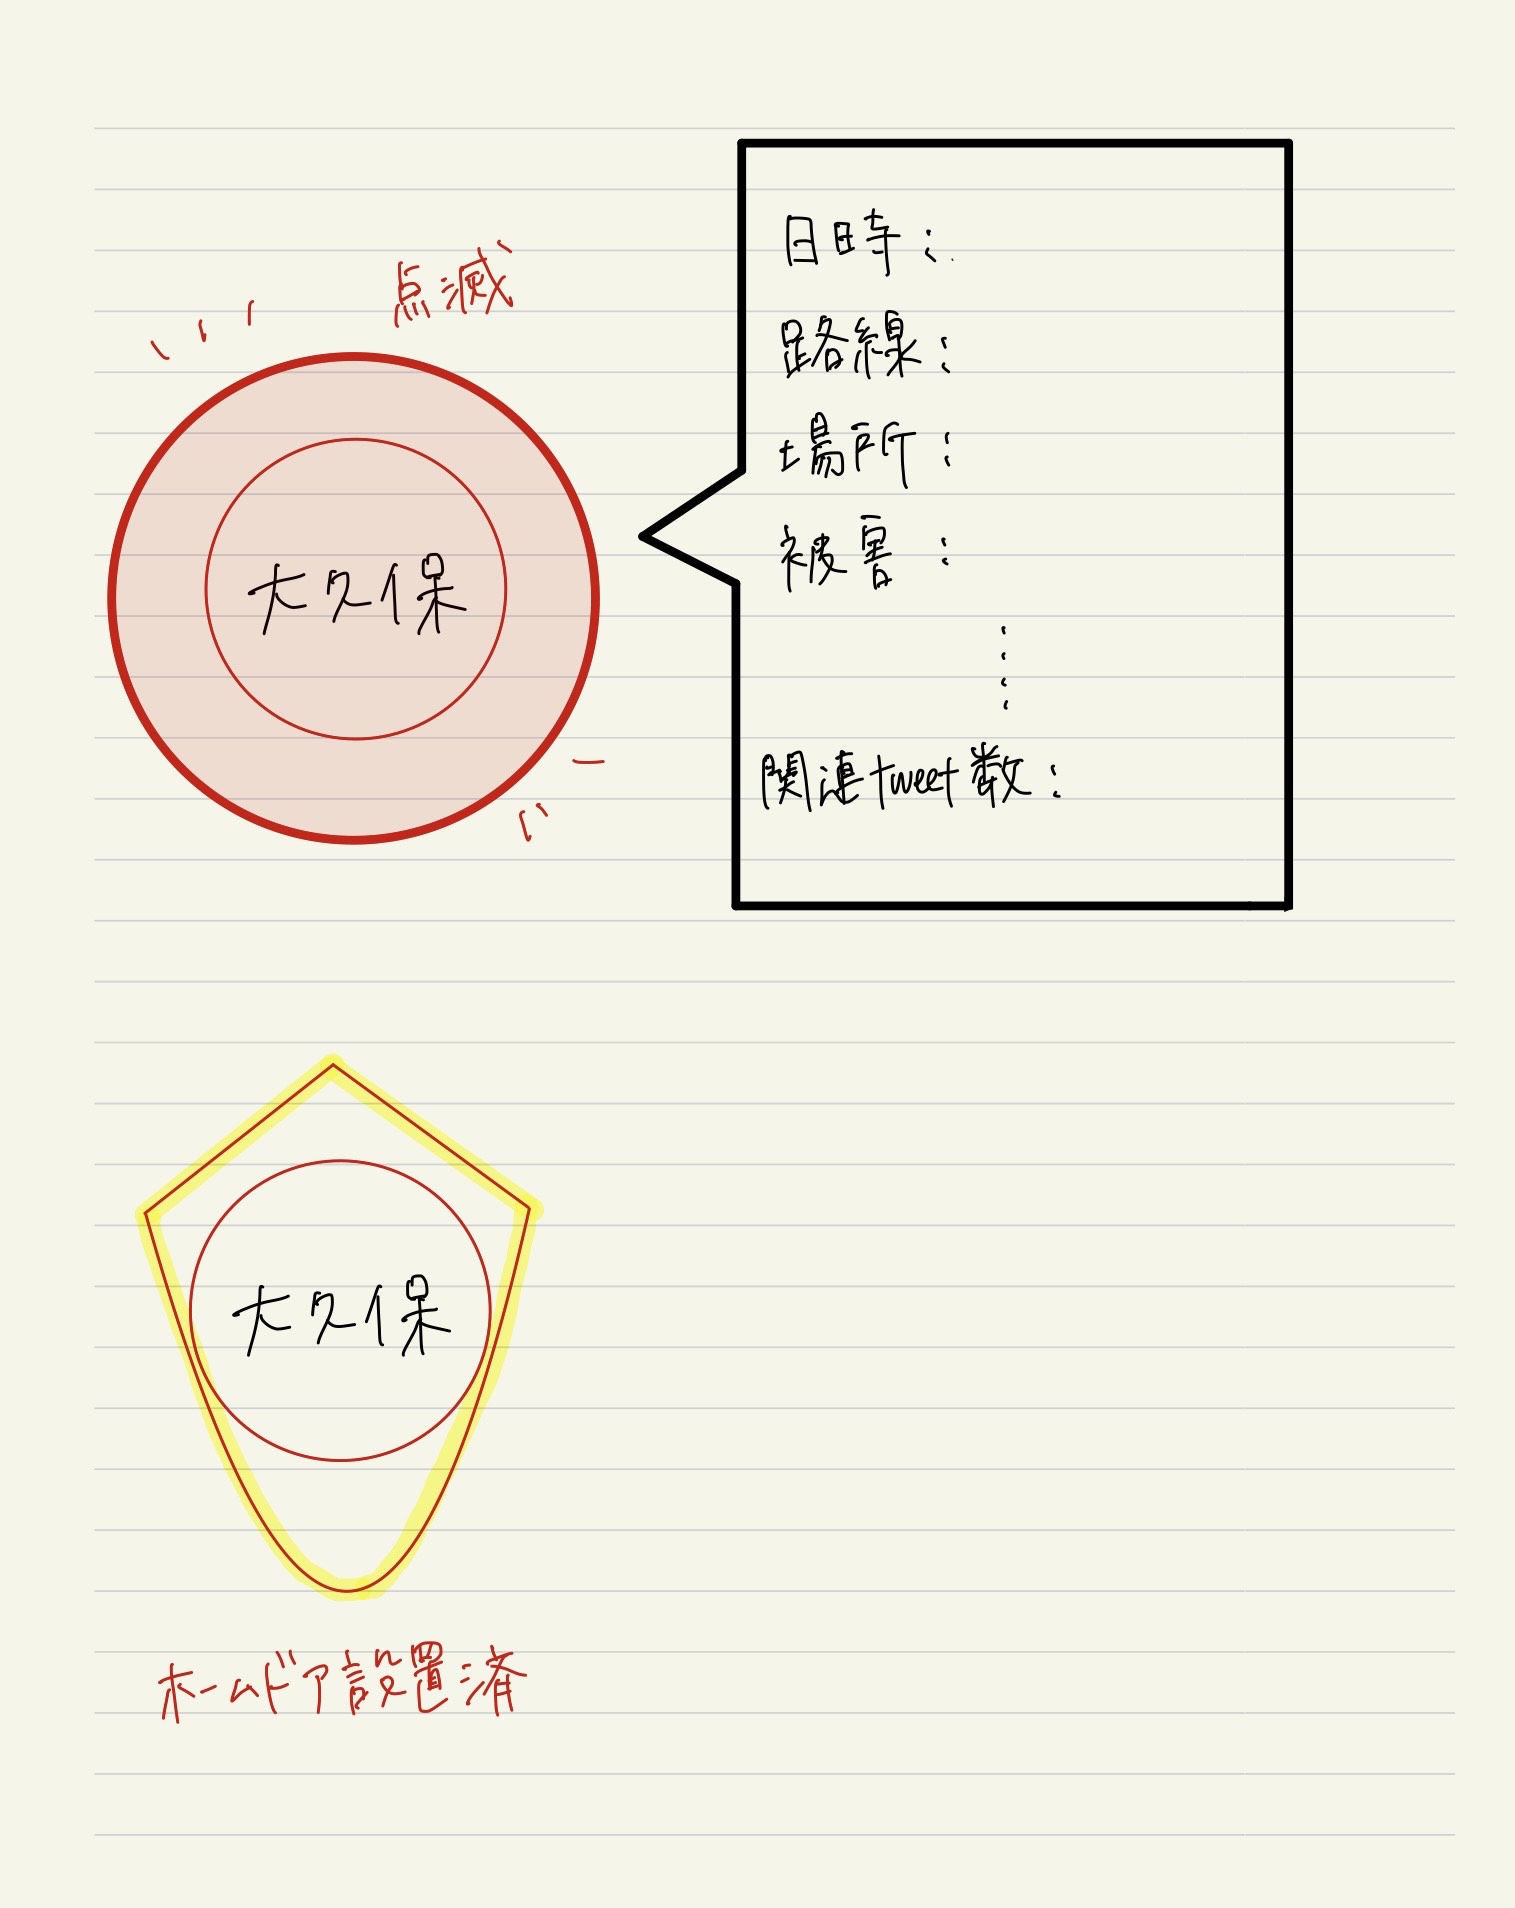 点滅
大久保
日時:
路線:
場所:
被害:
関連tweet数:
大久保
ホームドア設置済